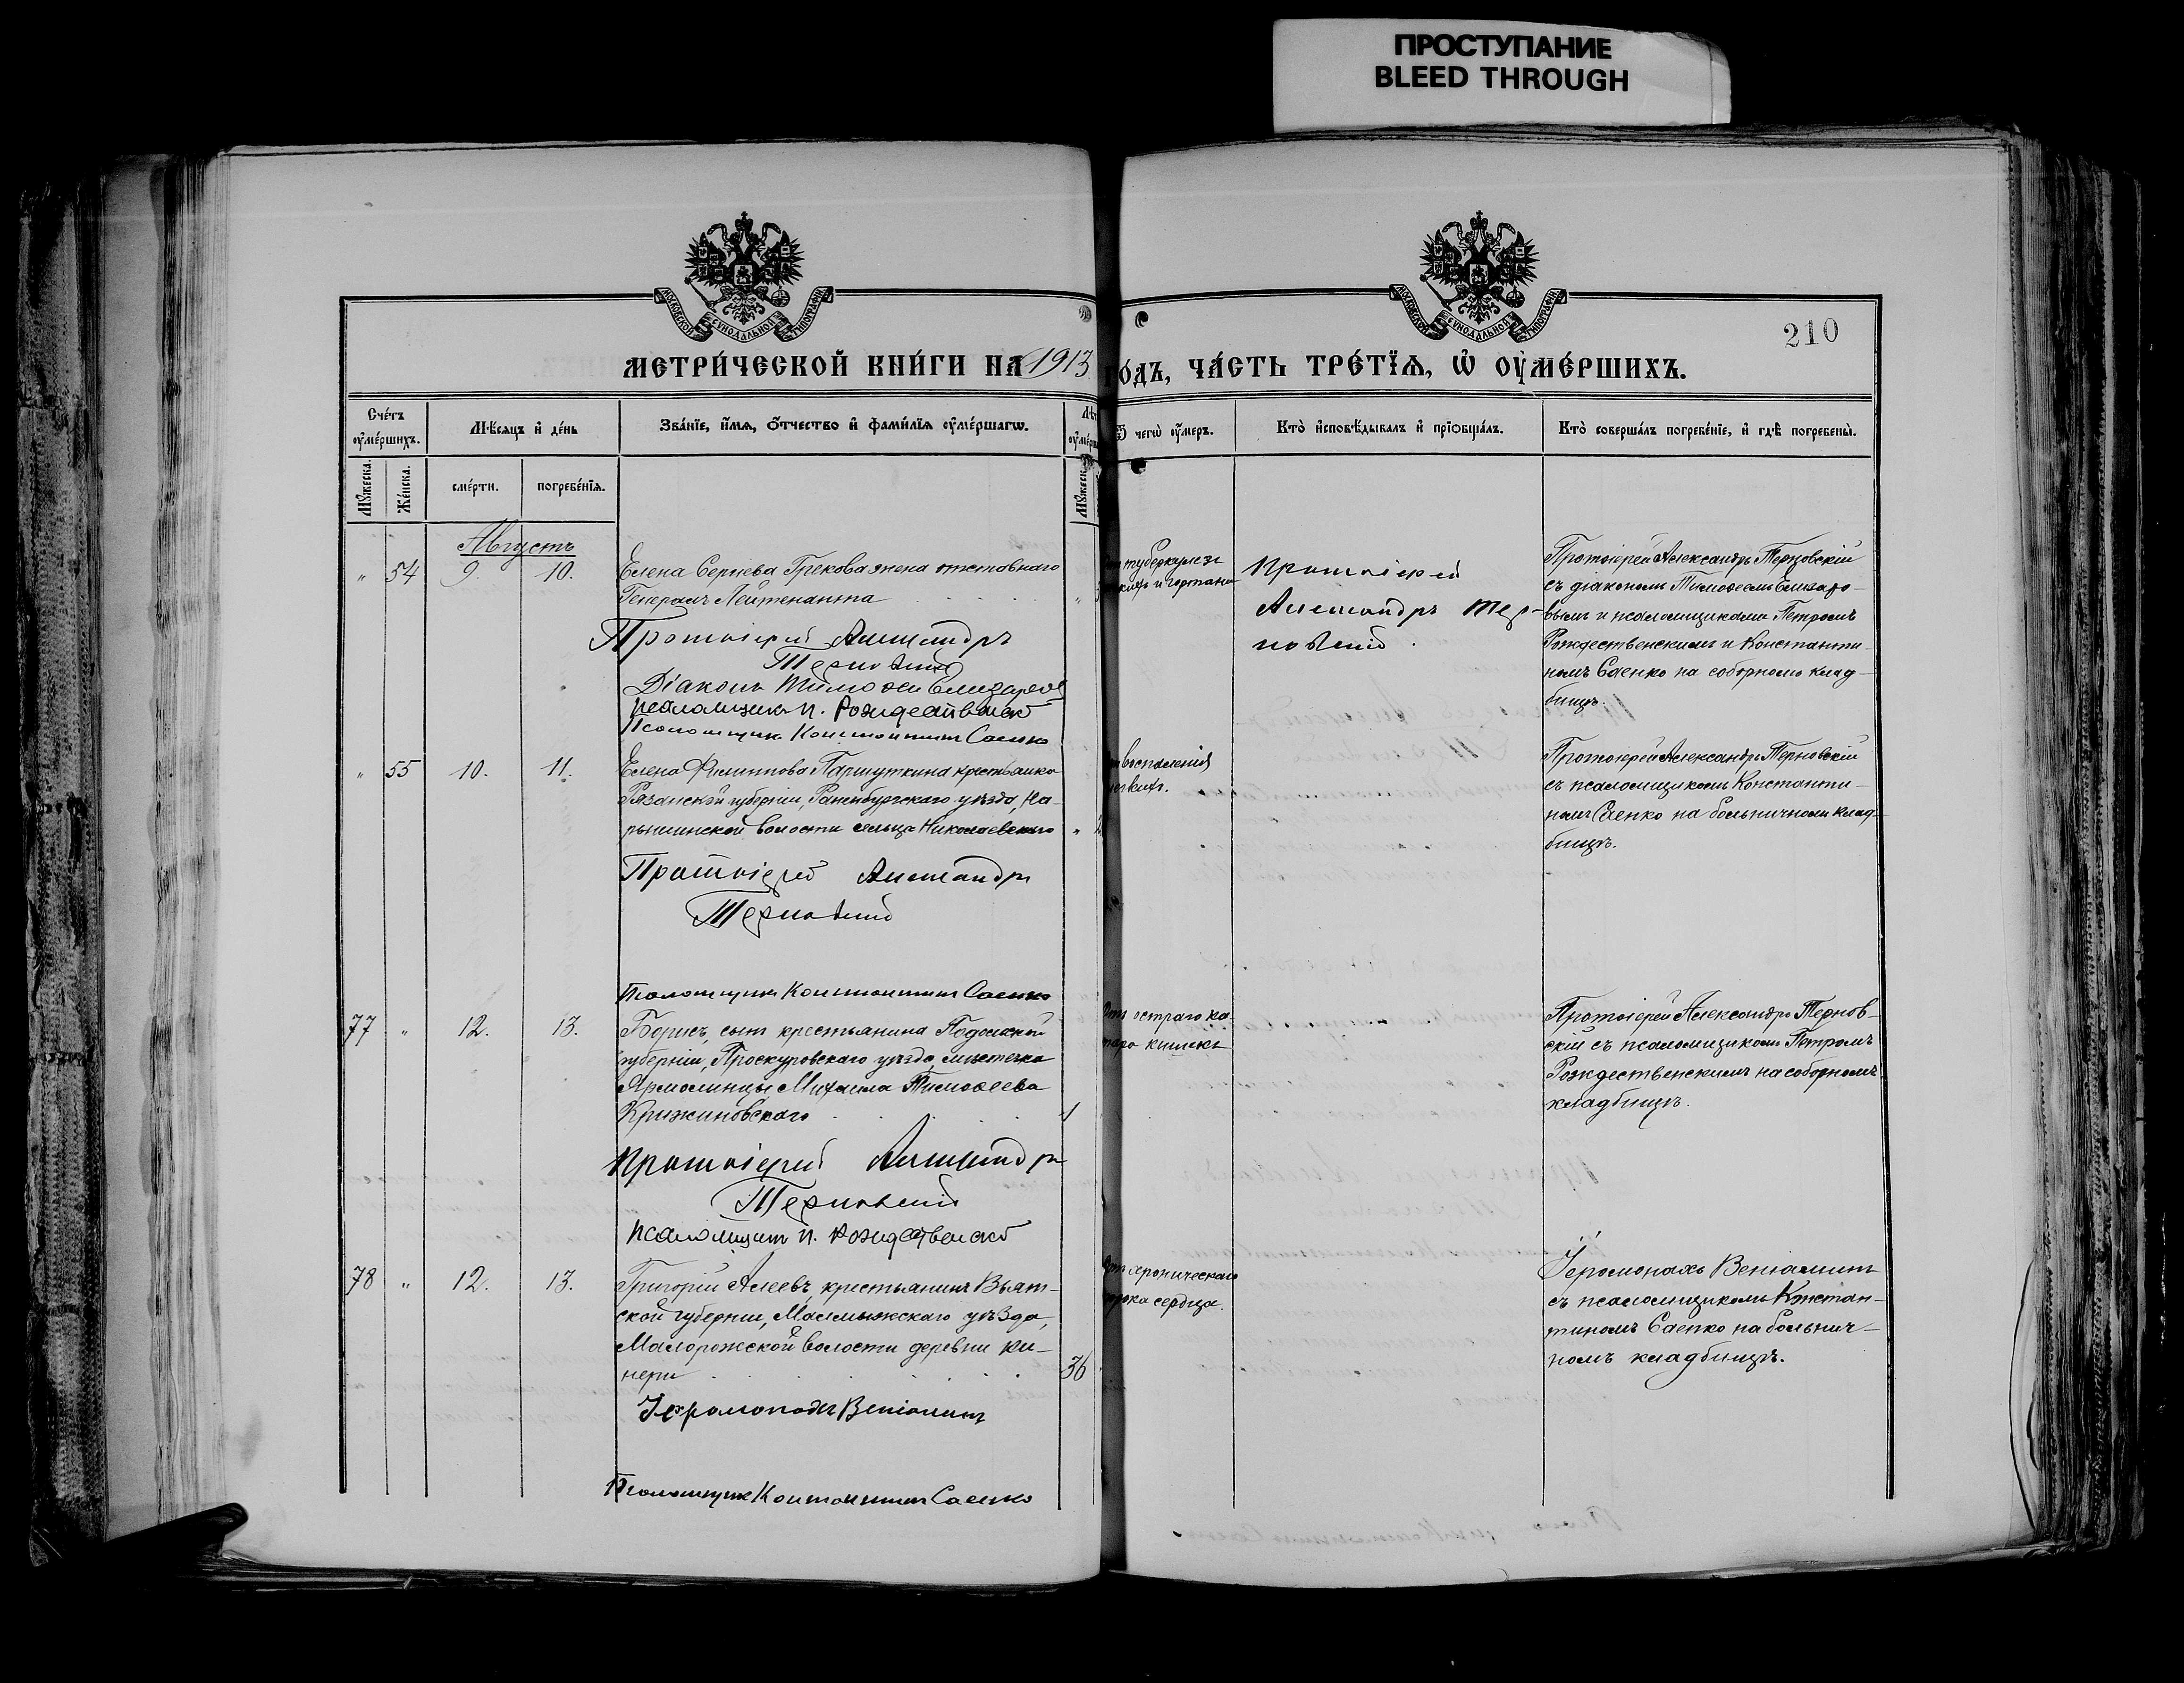 ПРОСТУПАНИЕ
BLEED THROUGH
МОСКОВСКОЙ СѴНОДАЛЬНОЙ ТИПОГРАФІИ
МОСКОВСКОЙ СѴНОДАЛЬНОЙ ТИПОГРАФІИ
210
МЕТРИ́ЧЕСКОЙ КНИ́ГИ НА 1913 ГО́ДЪ, ЧА́СТЬ ТРЕ́ТЇѦ, Ѡ҆ ОУ҆МЕ́РШИХЪ.
Сче́тъ оу҆ме́ршихъ.
Мѣ́сяцъ и҆ де́нь
Зва́нїе, и҆́мя, ѻ҆́тчество и҆ фами́лїя оу҆ме́ршагѡ.
Ѿ чегѡ̀ оу҆́меръ.
Кто̀ и҆сповѣ́дывалъ и҆ прїѡбща́лъ.
Кто̀ соверша́лъ погребе́нїе, и҆ гдѣ̀ погребены̀.
Мꙋ́жеска.
Же́нска.
сме́рти.
погребе́нїя.
Мꙋ́жеск
Августъ
" 54 9. 10.
Елена Сергіева Грекова жена отставнаго
Генералъ Лейтенанта
Протоіерей Александръ
Терновскій
Діаконъ Тимоѳей Елизаров
Псаломщикъ П. Рождественскій
Псаломщикъ Константинъ Саенко
туберкулеза
и гортани
Протоіерей
Александръ Тер-
новскій.
Протоіерей Александръ Терновскій
съ діакономъ Тимоѳеемъ Елизаро-
вымъ и псаломщиками Петромъ
Рождественскимъ и Константи-
номъ Саенко на соборномъ клад-
бищѣ.
" 55 10. 11.
Елена Филиппова Паршуткина крестьянка
Рязанской губерніи, Раненбургскаго уѣзда, На-
рышкинской волости сельца Николаевскаго
Протоіерей Александръ
Терновскій
Псаломщикъ Константинъ Саенко
воспаленія
Протоіерей Александръ Терновскій
съ псаломщикомъ Константи-
номъ Саенко на больничномъ клад-
бищѣ.
77 " 12. 13.
Борисъ, сынъ крестьянина Подольской
губерніи, Проскуровскаго уѣзда, мѣстечка
Ярмолинцы Михаила Тимоѳеева
Крижиновскаго 1
Протоіерей Александръ
Терновскій
Псаломщикъ П. Рождественскій
Отъ остраго ка-
тара кишекъ
Протоіерей Александръ Тернов-
скій съ псаломщикомъ Петромъ
Рождественскимъ на соборномъ
кладбищѣ.
78 " 12. 13.
Григорій Алеевъ, крестьянинъ Вят-
ской губерніи, Малмыжскаго уѣзда,
Малорожской волости деревни Ки-
нери 36
Іеромонахъ Веніаминъ
Псаломщикъ Константинъ Саенко
Отъ хроническаго
порока сердца.
Іеромонахъ Веніаминъ
съ псаломщикомъ Констан-
тиномъ Саенко на больнич-
номъ кладбищѣ.